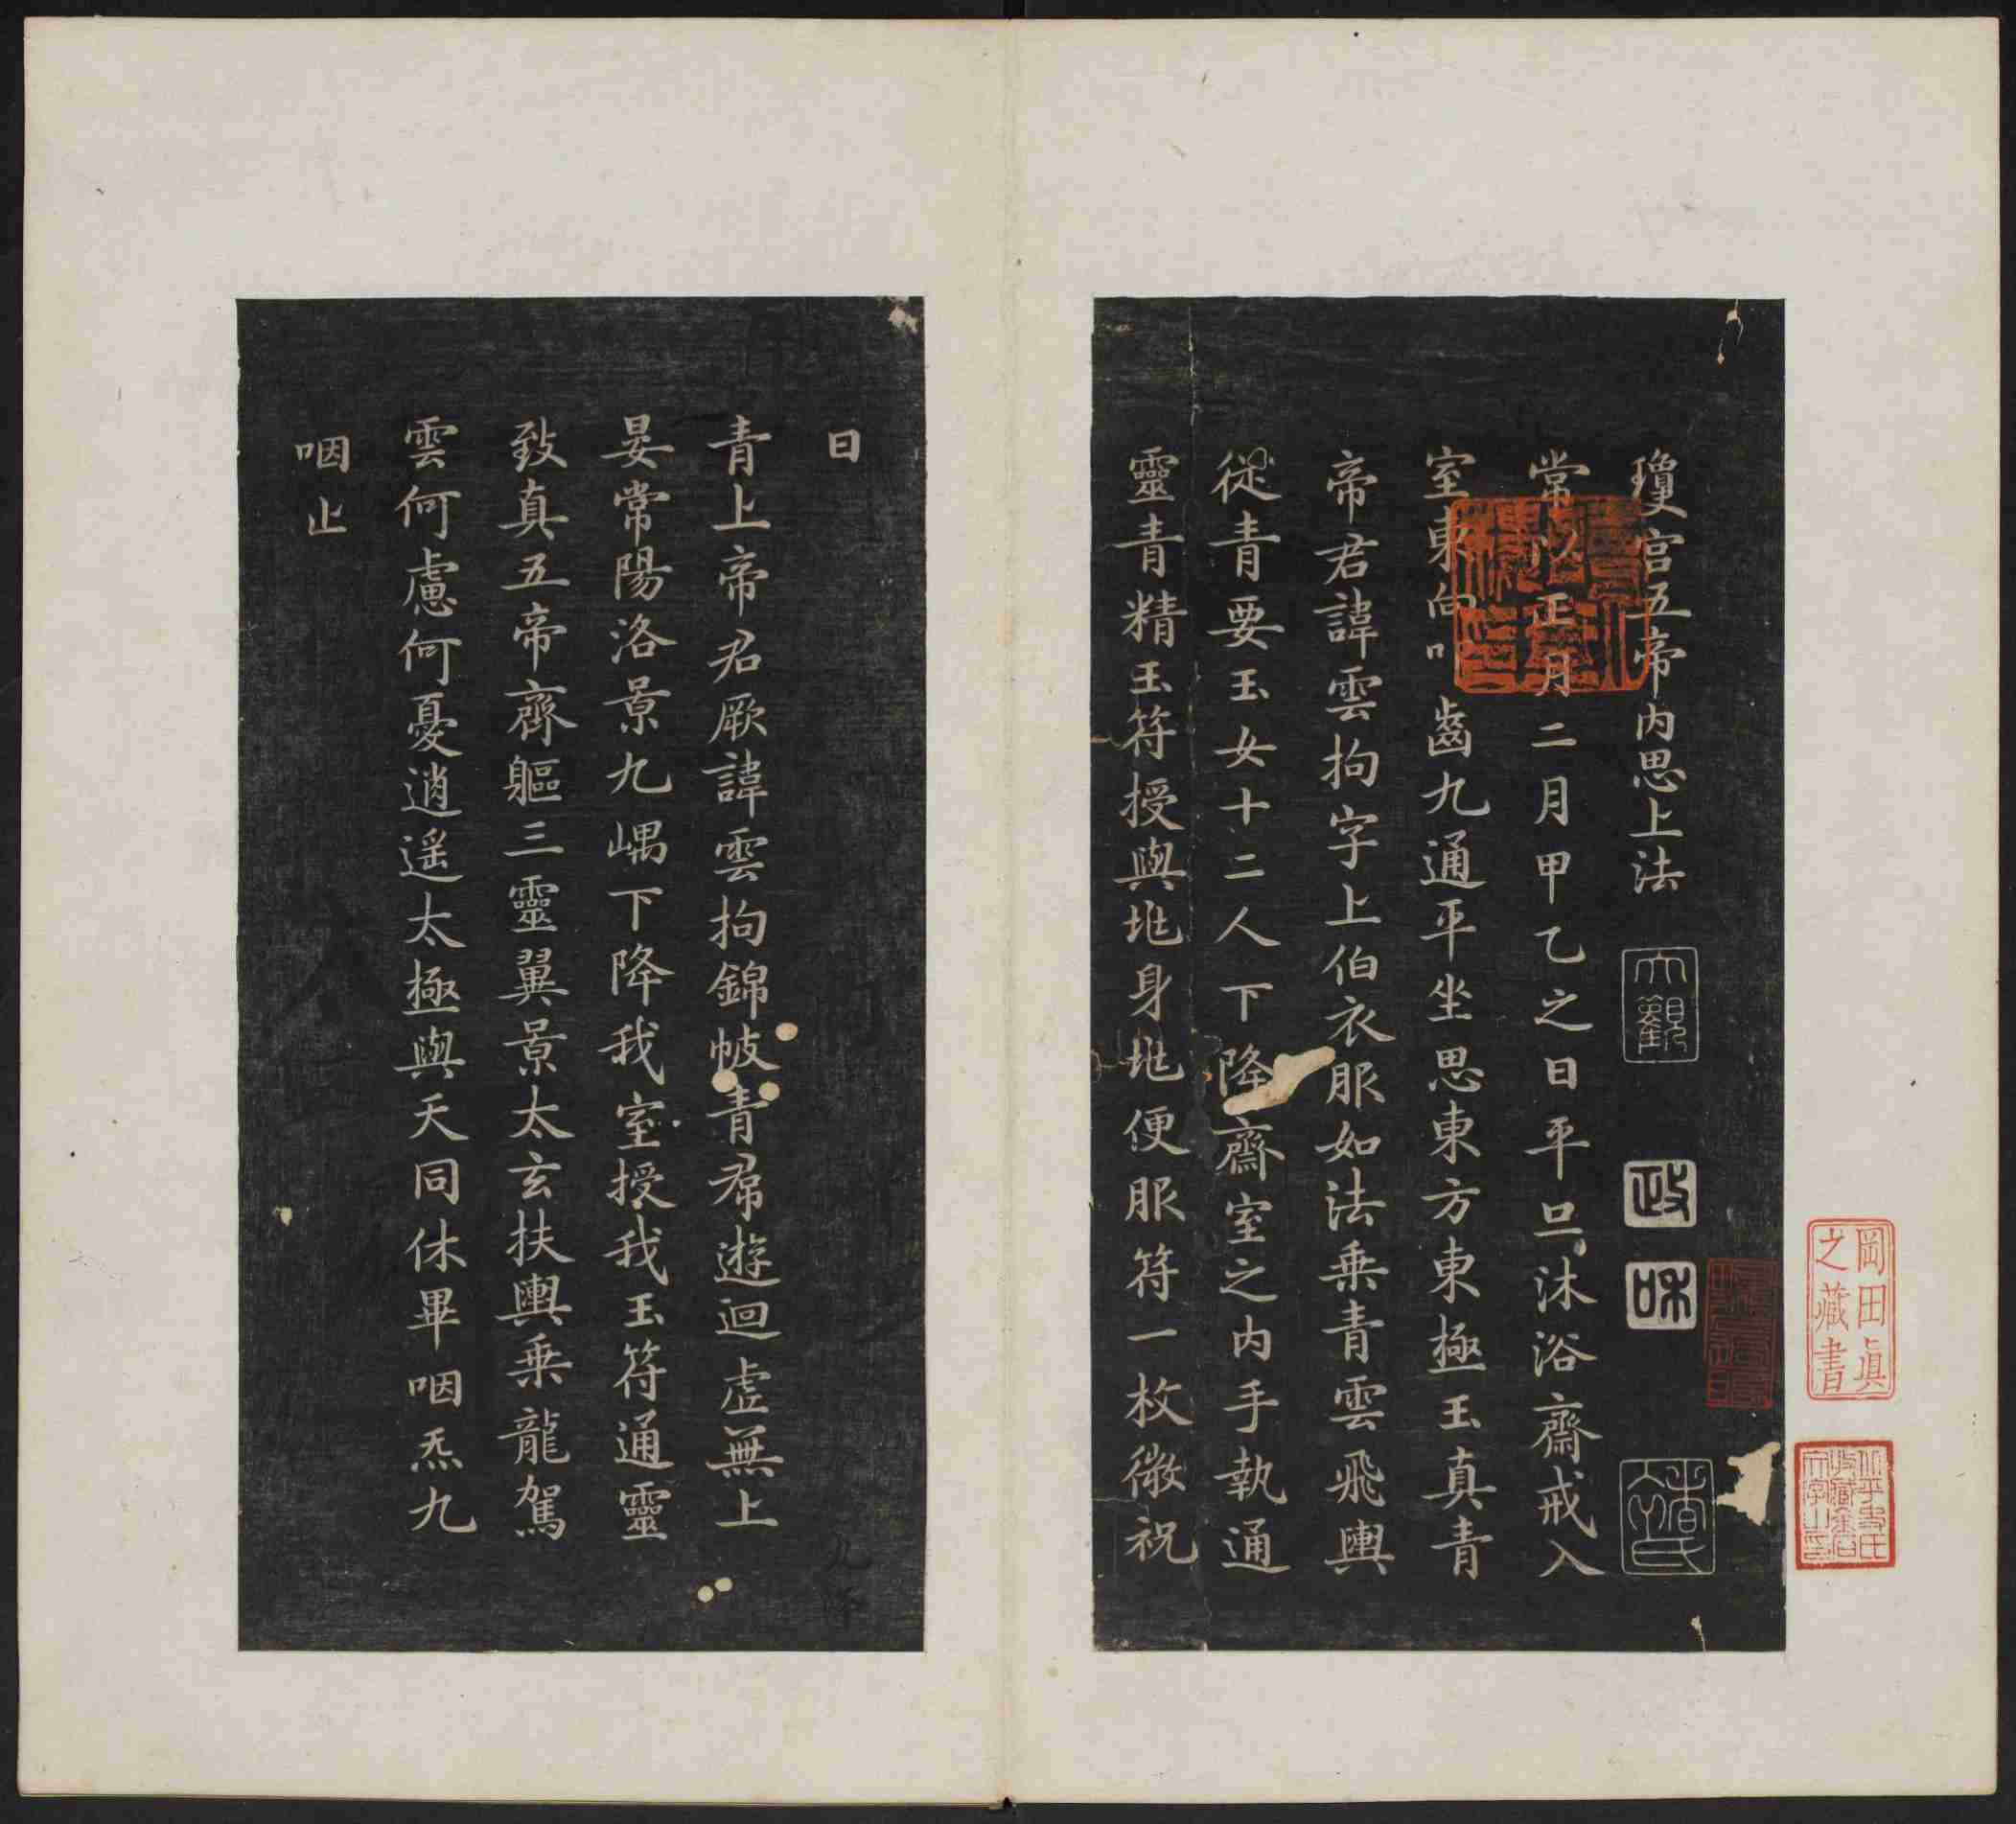 瓊宮五帝內思上法
大觀
政
和
常以正月二月甲乙之日平旦沐浴齋戒入
室東向叩齒九通平坐思東方東極玉真青
帝君諱雲拘字上伯衣服如法乘青雲飛輿
從青要玉女十二人下降齋室之內手執通
靈青精玉符授與地身地便服符一枚微祝
曰
青上帝君厥諱雲拘錦帔青帬遊迴虛無上
晏常陽洛景九嵎下降我室授我玉符通靈
致真五帝齊軀三靈翼景太玄扶輿乘龍駕
雲何慮何憂逍遙太極與天同休畢咽炁九
咽止
岡田眞
之藏書